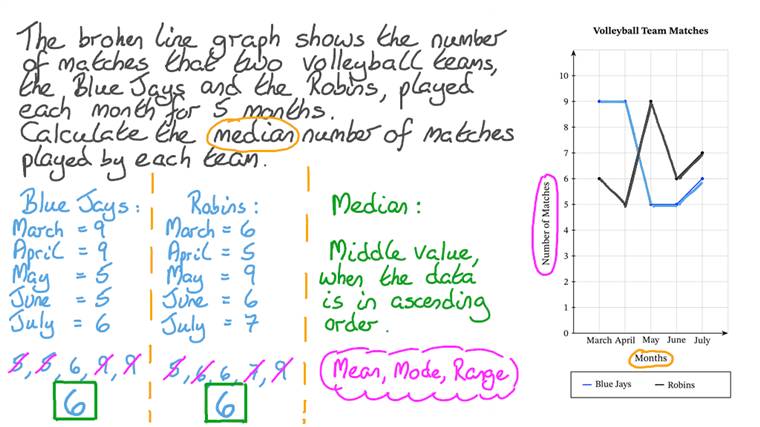 The broken line graph shows the number
of matches that two volleyball teams,
the Blue Jays and the Robins, played
each month for 5 months.
Calculate the median number of matches
played by each team.
Blue Jays:
March = 9
April = 9
May = 5
June = 5
July = 6
5, 5, 6, 9, 9
6
Robins:
March = 6
April = 5
May = 9
June = 6
July = 7
5, 6, 6, 7, 9
6
Median:
Middle value,
when the data
is in ascending
order.
Mean, Mode, Range
Volleyball Team Matches
Number of Matches
10
9
8
7
6
5
4
3
2
1
0
March April May June July
Months
Blue Jays Robins